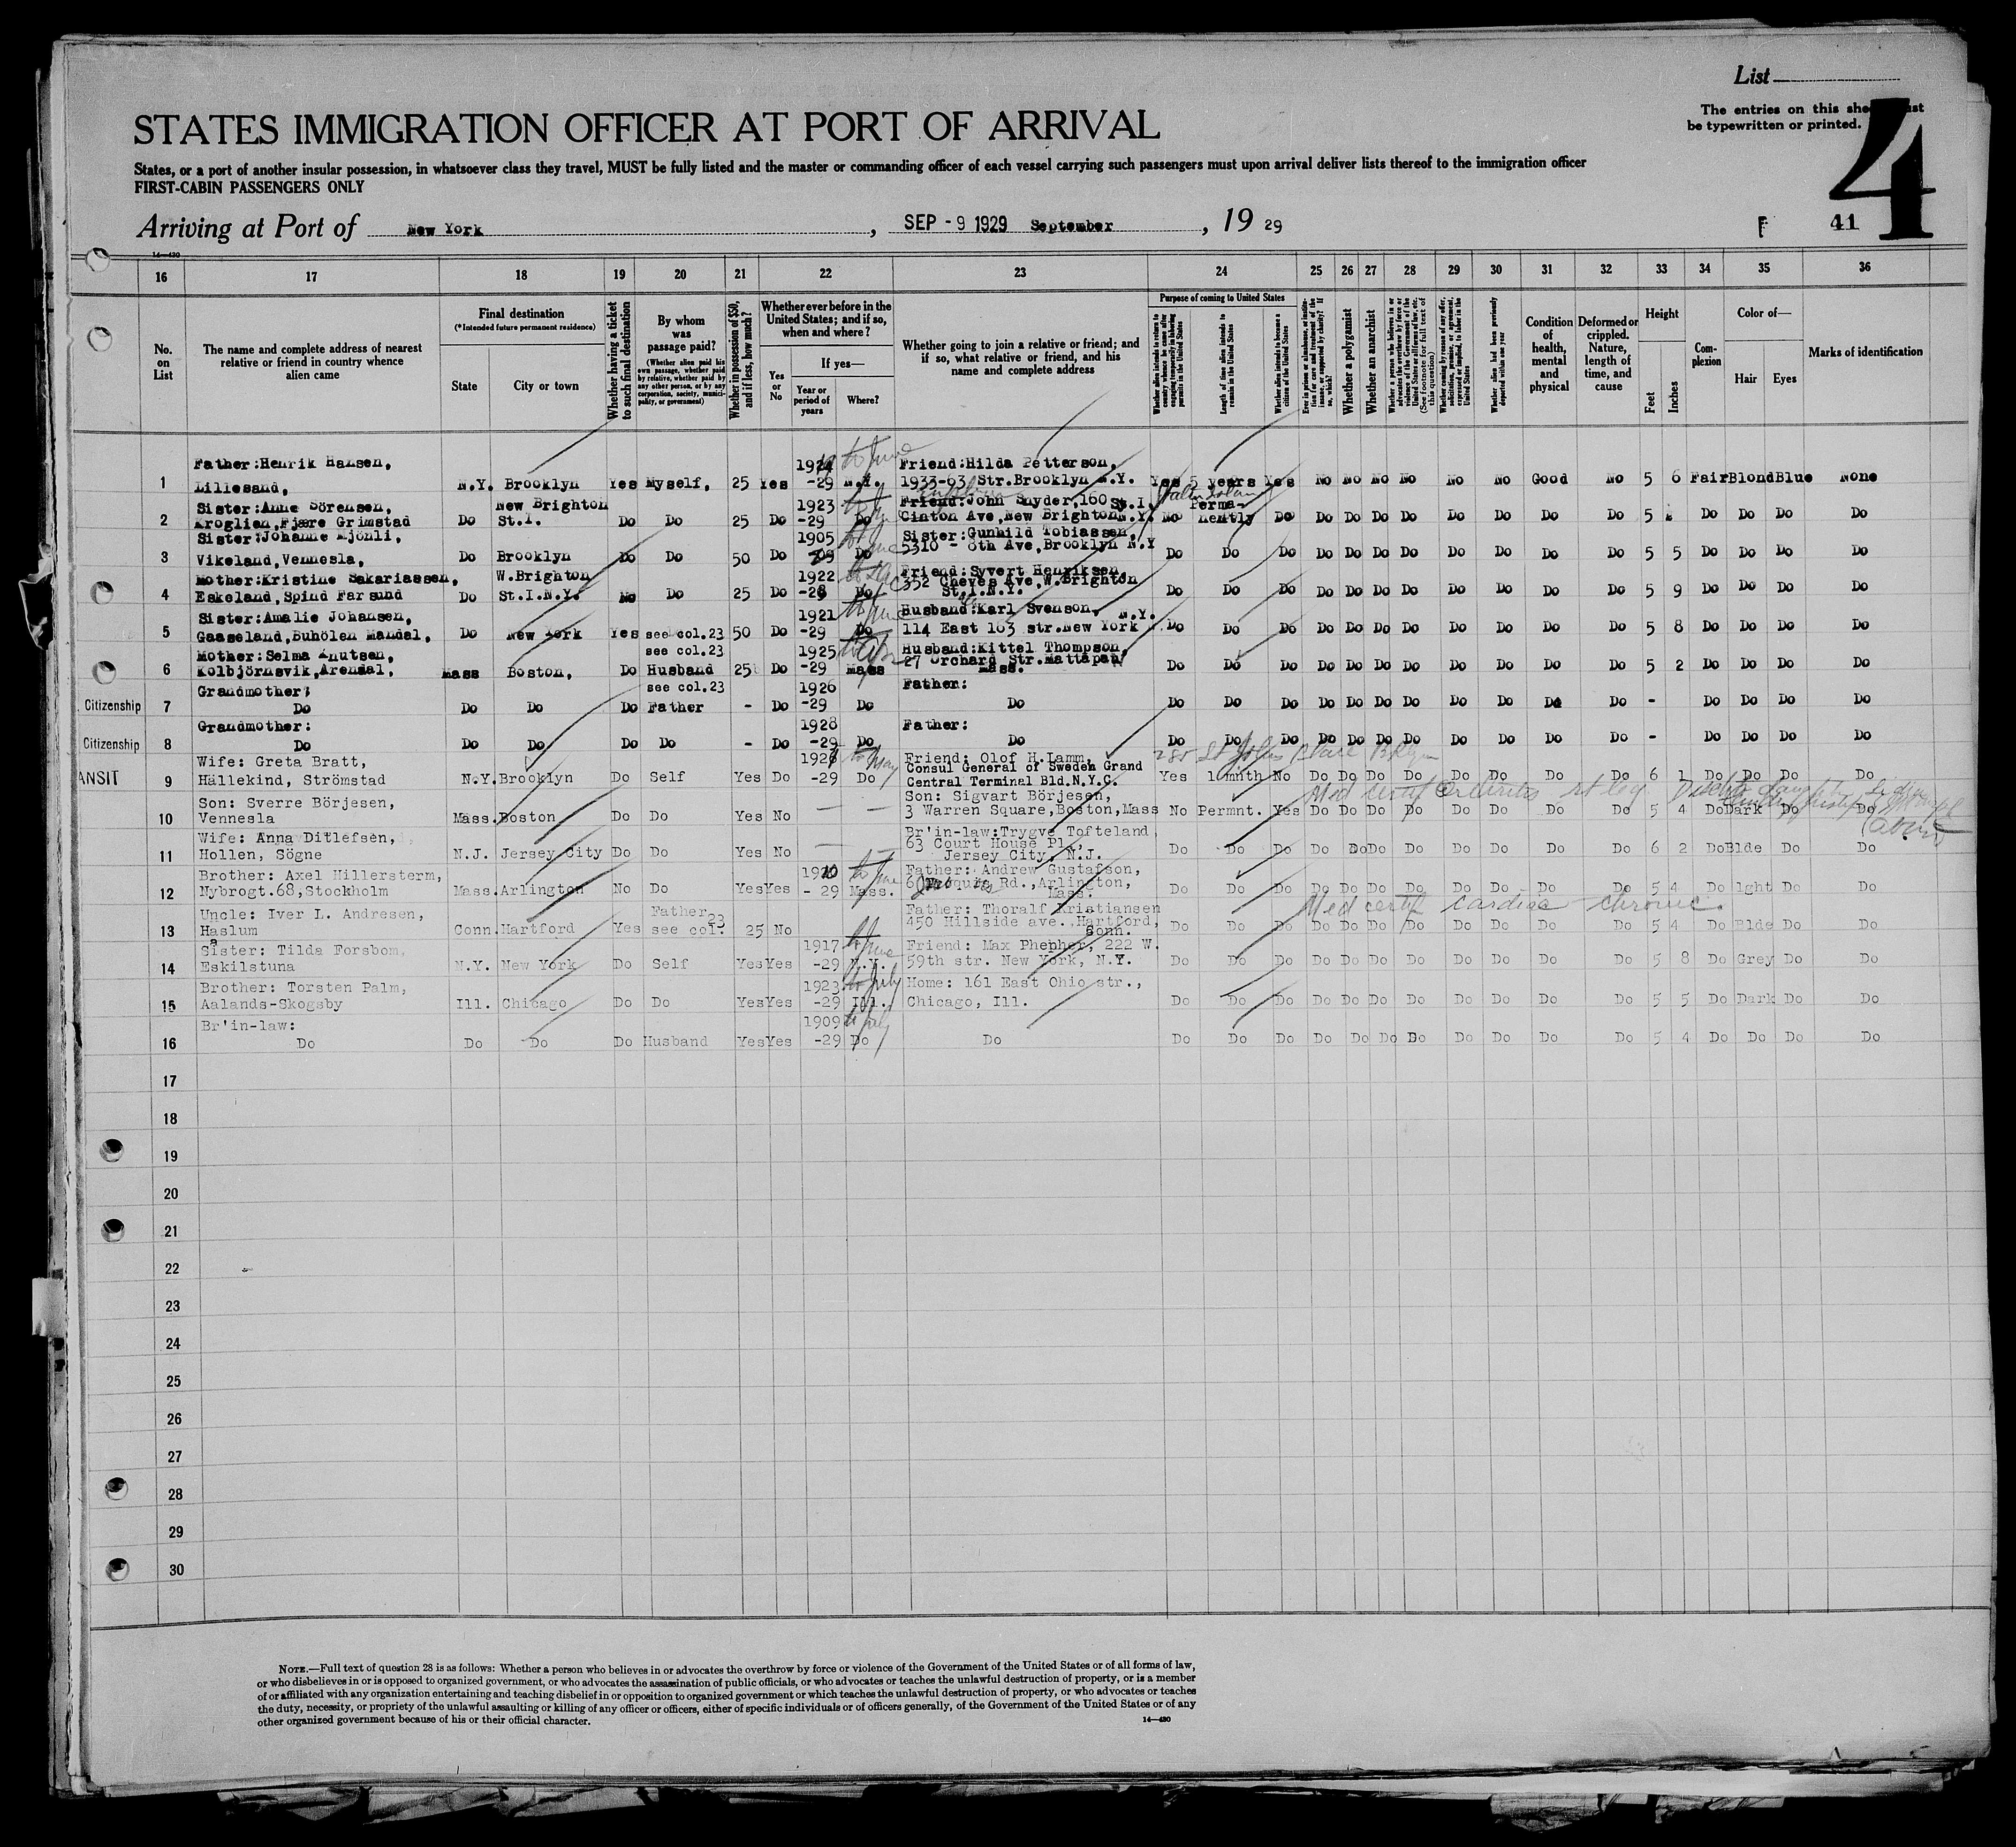 List
The entries on this sheet must
be typewritten or printed.
4
STATES IMMIGRATION OFFICER AT PORT OF ARRIVAL
States, or a port of another insular possession, in whatsoever class they travel, MUST be fully listed and the master or commanding officer of each vessel carrying such passengers must upon arrival deliver lists thereof to the immigration officer
FIRST-CABIN PASSENGERS ONLY
Arriving at Port of New York, SEP - 9 1929 September, 19 29
F 41
14—430
16 17 18 19 20 21 22 23 24 25 26 27 28 29 30 31 32 33 34 35 36
No. on List
The name and complete address of nearest relative or friend in country whence alien came
Final destination
(*Intended future permanent residence)
State
City or town
Whether having a ticket to such final destination
By whom was passage paid?
(Whether alien paid his own passage, whether paid by relative, whether paid by any other person, or by any corporation, society, municipality, or government)
Whether in possession of $50, and if less, how much?
Whether ever before in the United States; and if so, when and where?
Yes or No
If yes—
Year or period of years
Where?
Whether going to join a relative or friend; and if so, what relative or friend, and his name and complete address
Purpose of coming to United States
Length of time alien intends to remain in the United States
Whether alien intends to become a citizen of the United States
Whether a polygamist
Whether an anarchist
Condition of health, mental and physical
Deformed or crippled. Nature, length of time, and cause
Height
Feet
Inches
Complexion
Color of—
Hair
Eyes
Marks of identification
Father:Henrik Hansen, 1924 Friend:Hilda Petterson,
1 Lillesand, N.Y. Brooklyn Yes Myself, 25 Yes -29 N.Y. 1933-63 Str.Brooklyn N.Y. Yes 5 years Yes No No No No No No Good No 5 6 Fair Blond Blue None
Sister:Anne Sörensen, New Brighton 1923 Friend:John Snyder,160 St.I. Perma-
2 Kroglien,Fjære Grimstad Do St.I. Do Do 25 Do -29 Do Cinton Ave,New Brighton N.Y. No nently Do Do Do Do Do Do Do Do Do 5 Do Do Do Do
Sister:Johanne Mjönli, 1905 Sister:Gunhild Tobiassen,
3 Vikeland,Vennesla, Do Brooklyn Do Do 50 Do Do 5310 - 8th Ave,Brooklyn N.Y Do Do Do Do Do Do Do Do Do Do Do 5 5 Do Do Do Do
Mother:Kristine Sakariassen, W.Brighton 1922 Friend:Syvert Henriksen,
4 Eskeland,Spind Farsund Do St.I.N.Y. No Do 25 Do -28 Do 332 Cheves Ave,W.Brighton St.I.N.Y. Do Do Do Do Do Do Do Do Do Do Do 5 9 Do Do Do Do
Sister:Amalie Johansen, 1921 Husband:Karl Svenson, N.Y.
5 Gaaseland,Buhölen Mandal, Do New York Yes see col.23 50 Do -29 Do 114 East 103 str.New York Do Do Do Do Do Do Do Do Do Do Do 5 8 Do Do Do Do
Mother:Selma Knutsen, see col.23 1925 Husband:Kittel Thompson,
6 Kolbjörnsvik,Arendal, Mass Boston, Do Husband 25 Do -29 Mass 27 Orchard Str.Mattapan Mass. Do Do Do Do Do Do Do Do Do Do Do 5 2 Do Do Do Do
Grandmother; see col.23 1926 Father:
Citizenship 7 Do Do Do Do Father - Do -29 Do Do Do Do Do Do Do Do Do Do Do Do Do - Do Do Do Do
Grandmother: 1928 Father:
Citizenship 8 Do Do Do Do Do - Do -29 Do Do Do Do Do Do Do Do Do Do Do Do Do - Do Do Do Do
Wife: Greta Bratt, to May Friend: Olof H.Lamm, 285 St Johns Place Bklyn
ANSIT 9 Hällekind, Strömstad N.Y. Brooklyn Do Self Yes Do -29 Do Consul General of Sweden Grand Central Terminal Bld.N.Y.C. Yes 1 mnth No Do Do Do Do Do Do Do Do 6 1 Do Do Do Do
Son: Sverre Börjesen, Son: Sigvart Börjesen, Med certif rt leg
10 Vennesla Mass. Boston Do Do Yes No — — 3 Warren Square,Boston,Mass No Permnt. Yes Do Do Do Do Do Do Do Do 5 4 Do Dark Do Do
Wife: Anna Ditlefsen, Br'in-law:Trygve Tofteland,
11 Hollen, Sögne N.J. Jersey City Do Do Yes No — — 63 Court House Pl., Jersey City, N.J. Do Do Do Do Do Do Do Do Do Do Do 6 2 Do Blde Do Do
Brother: Axel Hillersterm, to June Father: Andrew Gustafson,
12 Nybrogt.68,Stockholm Mass. Arlington No Do Yes Yes - 29 Mass. Rd.,Arlington, Mass. Do Do Do Do Do Do Do Do Do Do Do 5 4 Do lght Do Do
Uncle: Iver L. Andresen, Father Father: Thoralf Kristiansen Med certif cardiac chronic.
13 Haslum Conn. Hartford Yes see col. 23 25 No 450 Hillside ave.,Hartford, Conn. Do Do Do Do Do Do Do Do Do Do Do 5 4 Do Blde Do Do
Sister: Tilda Forsbom, 1917 to June Friend: Max Phepher, 222 W.
14 Eskilstuna N.Y. New York Do Self Yes Yes -29 N.Y. 59th str. New York, N.Y. Do Do Do Do Do Do Do Do Do Do Do 5 8 Do Grey Do Do
Brother: Torsten Palm, 1923 to July Home: 161 East Ohio str.,
15 Aalands-Skogsby Ill. Chicago Do Do Yes Yes -29 Ill. Chicago, Ill. Do Do Do Do Do Do Do Do Do Do Do 5 5 Do Dark Do Do
Br'in-law: 1909 to July
16 Do Do Do Do Husband Yes Yes -29 Do Do Do Do Do Do Do Do Do Do Do Do Do 5 4 Do Do Do Do
17
18
19
20
21
22
23
24
25
26
27
28
29
30
NOTE.—Full text of question 28 is as follows: Whether a person who believes in or advocates the overthrow by force or violence of the Government of the United States or of all forms of law,
or who disbelieves in or is opposed to organized government, or who advocates the assassination of public officials, or who advocates or teaches the unlawful destruction of property, or is a member
of or affiliated with any organization entertaining and teaching disbelief in or opposition to organized government or which teaches the unlawful destruction of property, or who advocates or teaches
the duty, necessity, or propriety of the unlawful assaulting or killing of any officer or officers, either of specific individuals or of officers generally, of the Government of the United States or of any
other organized government because of his or their official character.
14—430